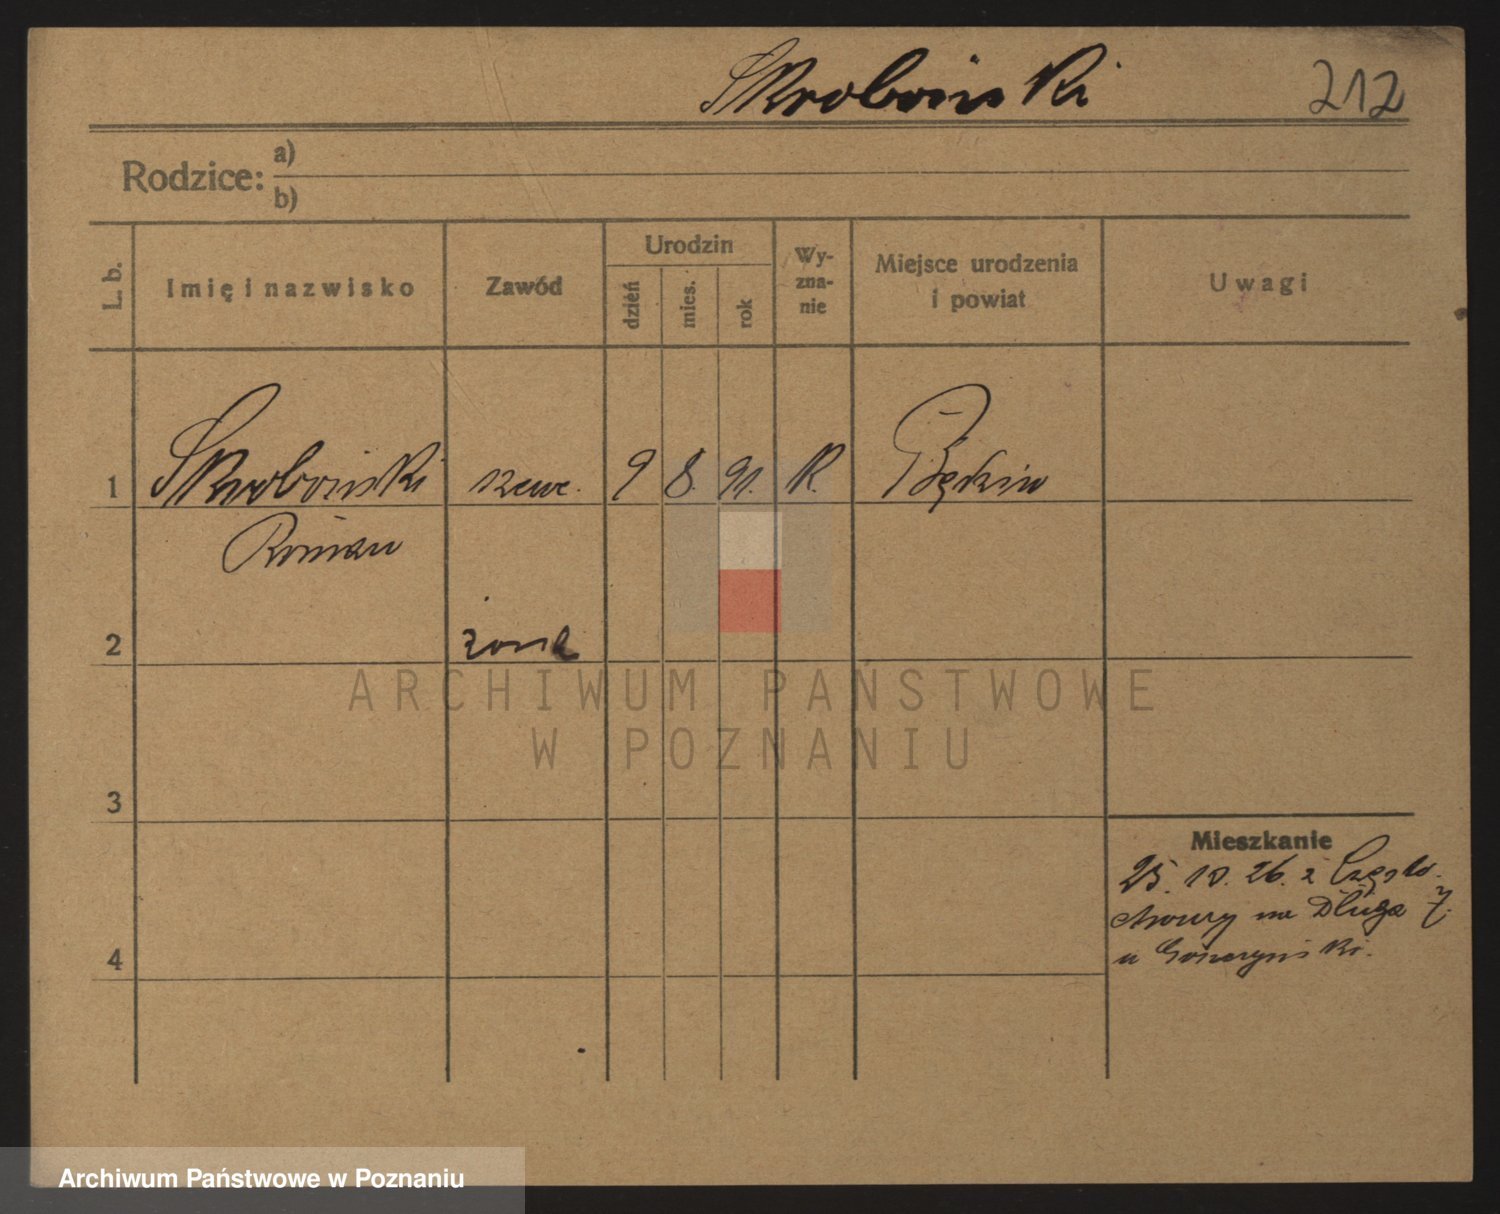 Skroboński 212
Rodzice: a)
b)
L. b. Imię i nazwisko Zawód Urodzin dzień mies. rok Wy-
zna-
nie Miejsce urodzenia
i powiat Uwagi
1 Skroboński szewc. 9 8. 91. R.
Roman
2 żona
ARCHIWUM PAŃSTWOWE
W POZNANIU
3
Mieszkanie
25. 10. 26. z Często-
chowy na Długa 7.
4 u
Archiwum Państwowe w Poznaniu